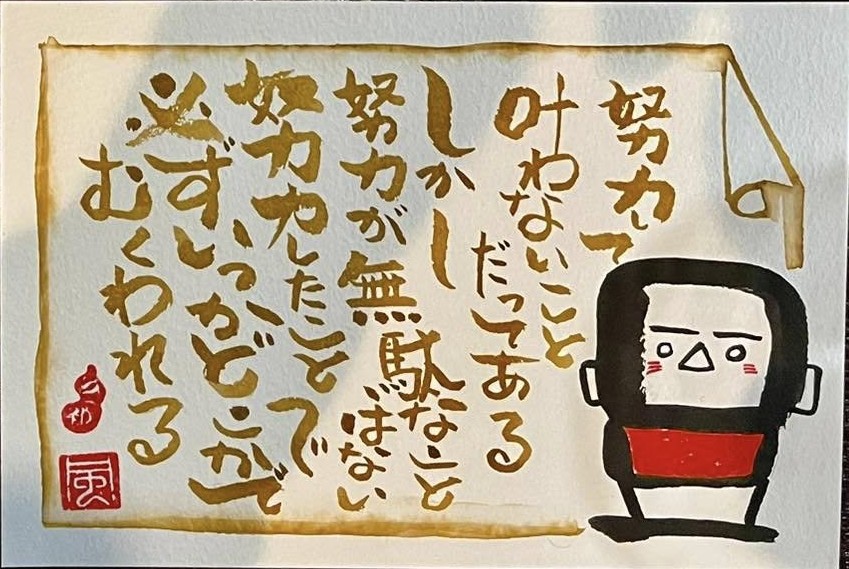 努力して
叶わないこと
だってある
しかし
努力が無駄なこと
はない
努力したことで
必ずいつかどこかで
むくわれる
風